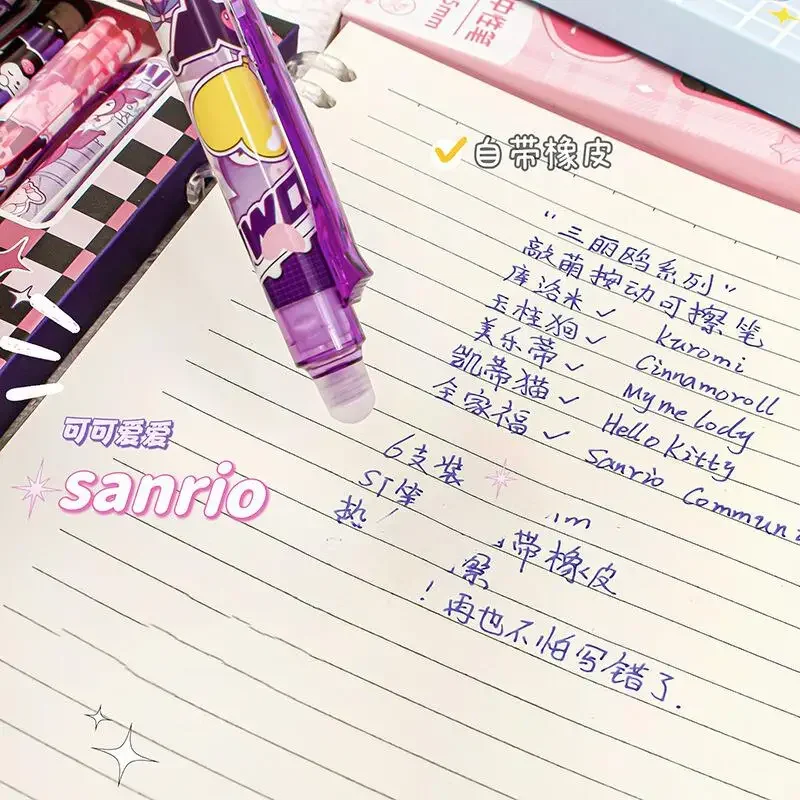 中性笔
5mm
自带橡皮
"三丽鸥系列"
敲萌按动可擦笔
库洛米✓ Kuromi
玉桂狗✓ Cinnamoroll
美乐蒂✓ My melody
凯蒂猫✓ Hello Kitty
全家福✓ Sanrio Communi
可可爱爱
sanrio
6支装
ST
热
带橡皮
！再也不怕写错了.